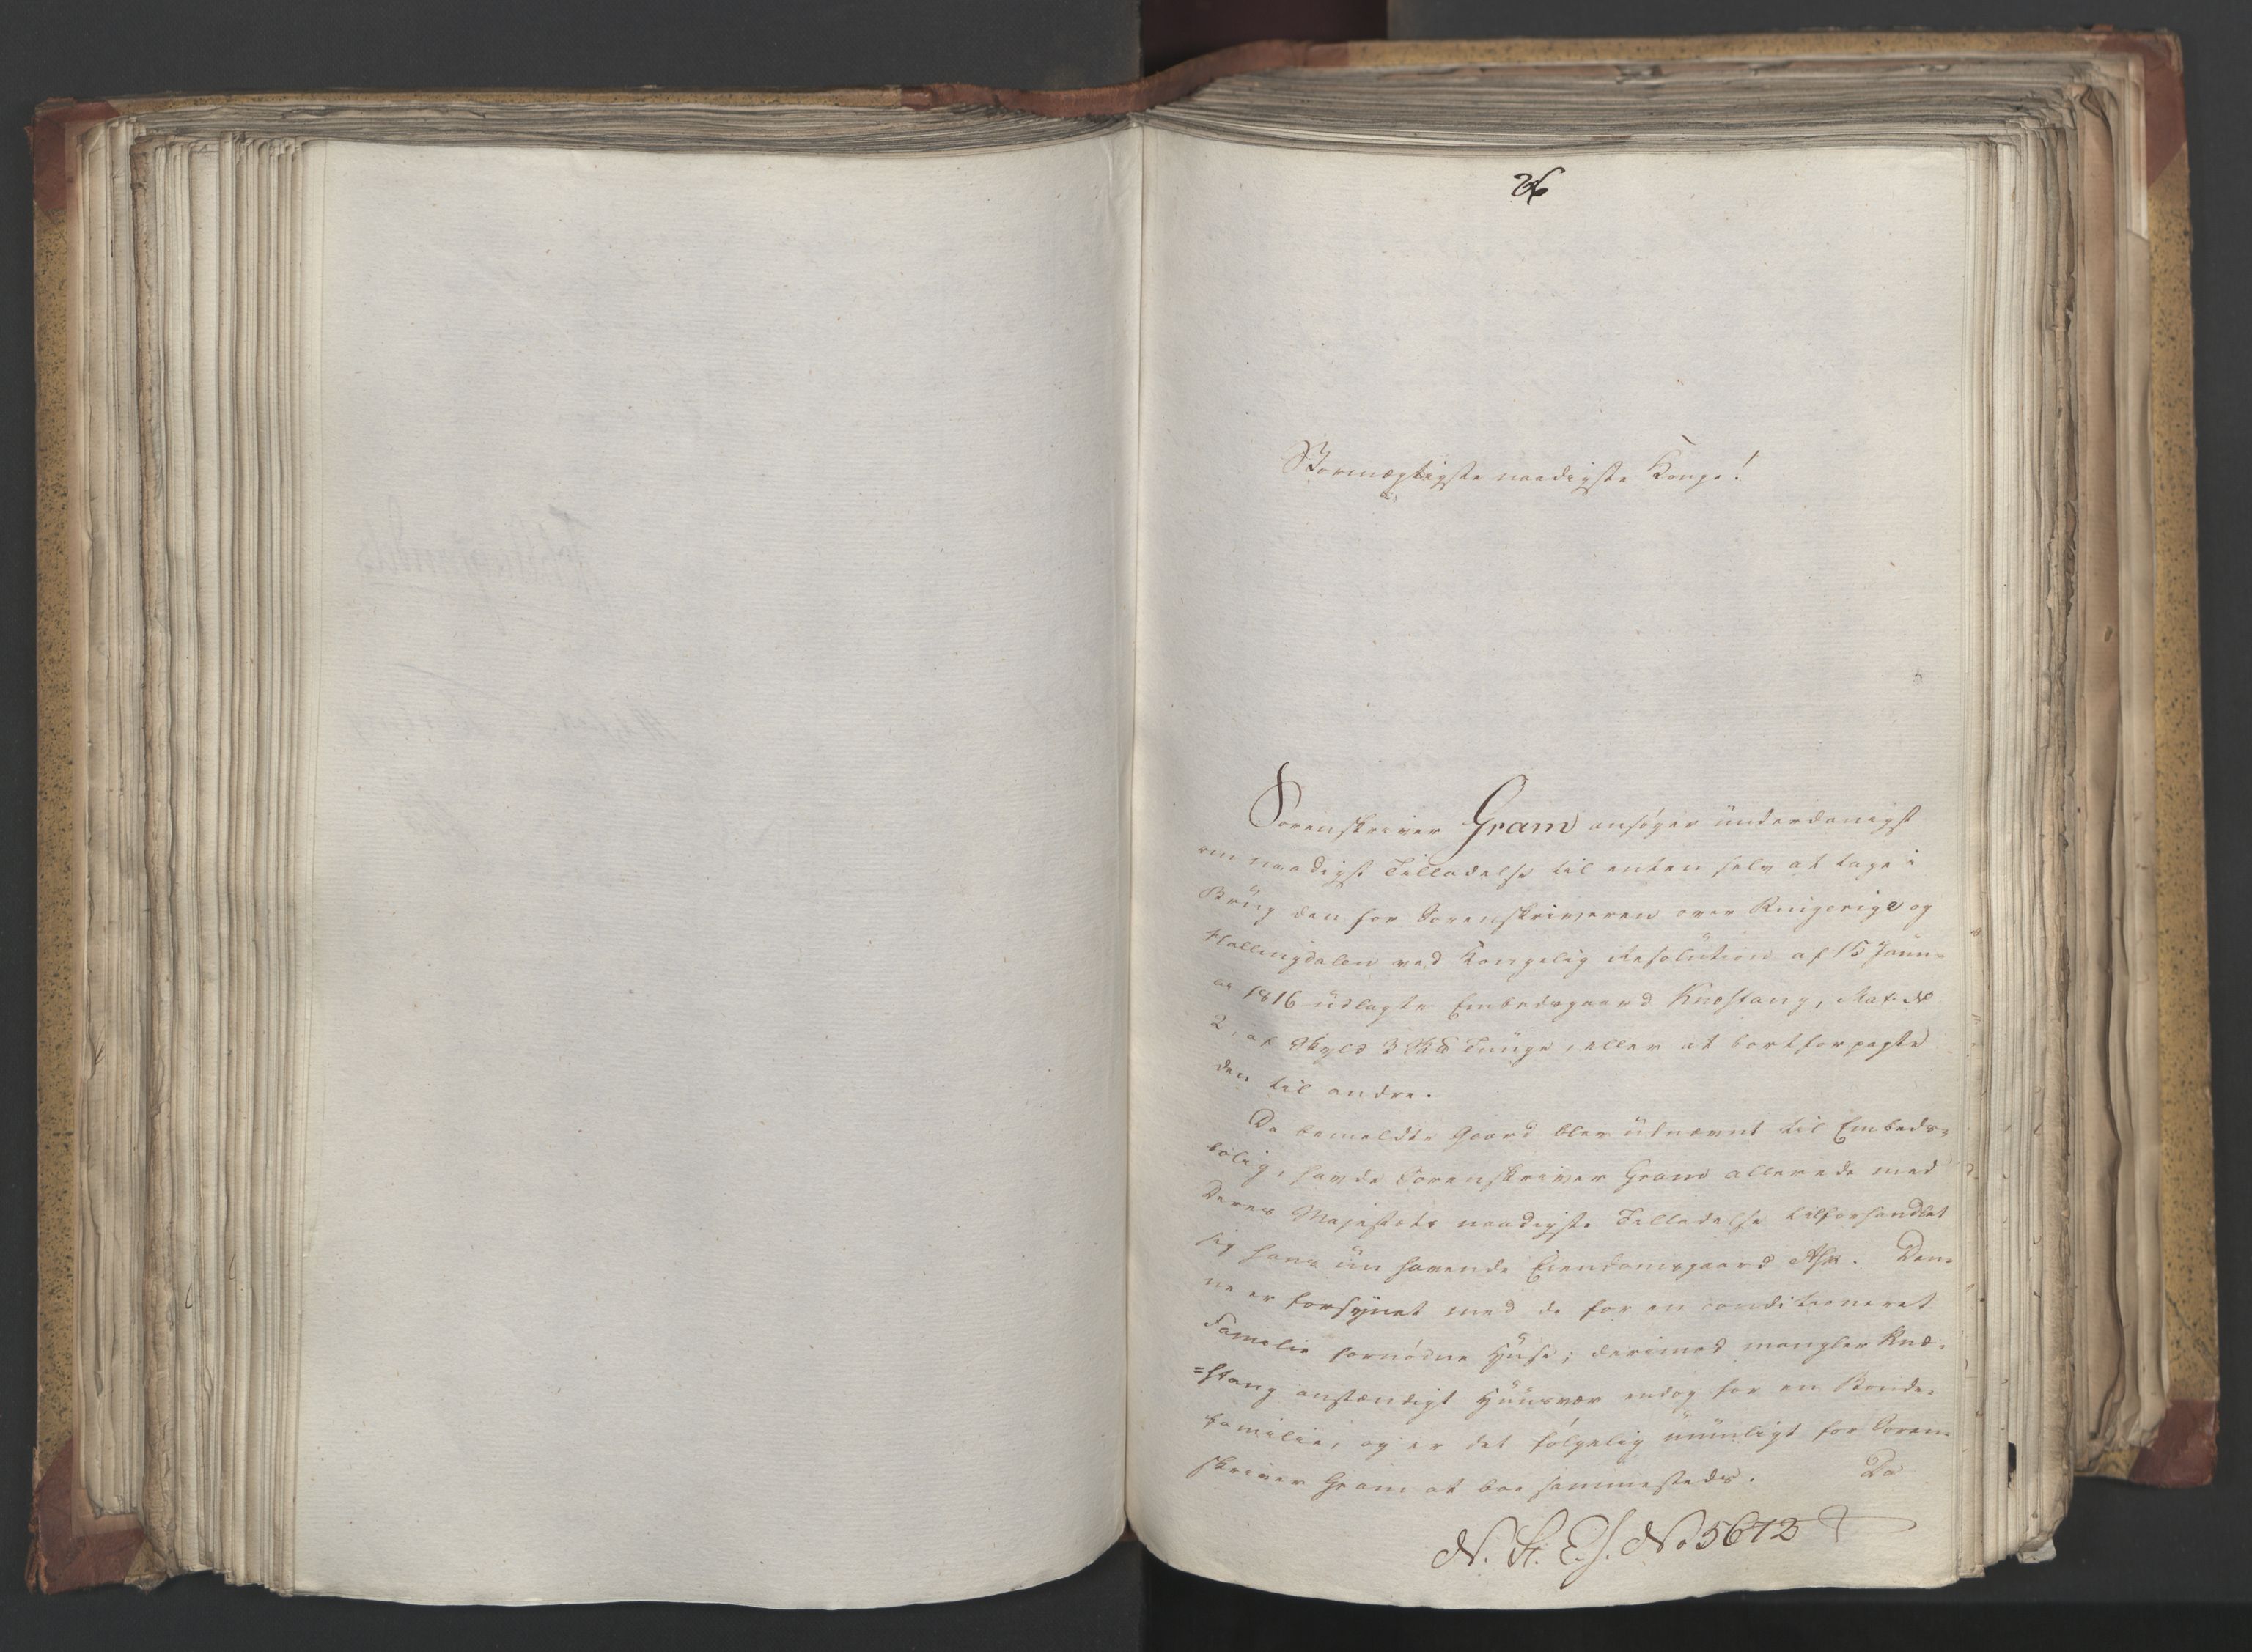 26
Stormægtigste naadigste Konge!
Sorenskriver Gram ansøger underdanigst
om naadigst Tilladelse til enten selv at tage i
Brug den for Sorenskriveren over Ringerige og
Hallingdalen ved Kongelig Resolution af 15 Janu-
ar 1816 udlagte Embedsgaard Knestang, Mat. No
2, af Skyld 3 Skd Tunge, eller at bortforpagte
den til andre.
Da bemeldte Gaard blev udnævnt til Embeds-
bolig, havde Sorenskriver Gram allerede med
Deres Majestæts naadigste Tilladelse tilforhandlet
sig hans nu havende Eiendomsgaard Ask. Den-
ne er forsynet med de for en conditioneret
Familie fornødne Huse; derimod mangler Knæ-
=stang anstændigt Huusvær endog for en Bonde-
familie, og er det følgelig umuligt for Soren-
skriver Gram at boe sammesteds. Da
N. St. E. J. No 5672